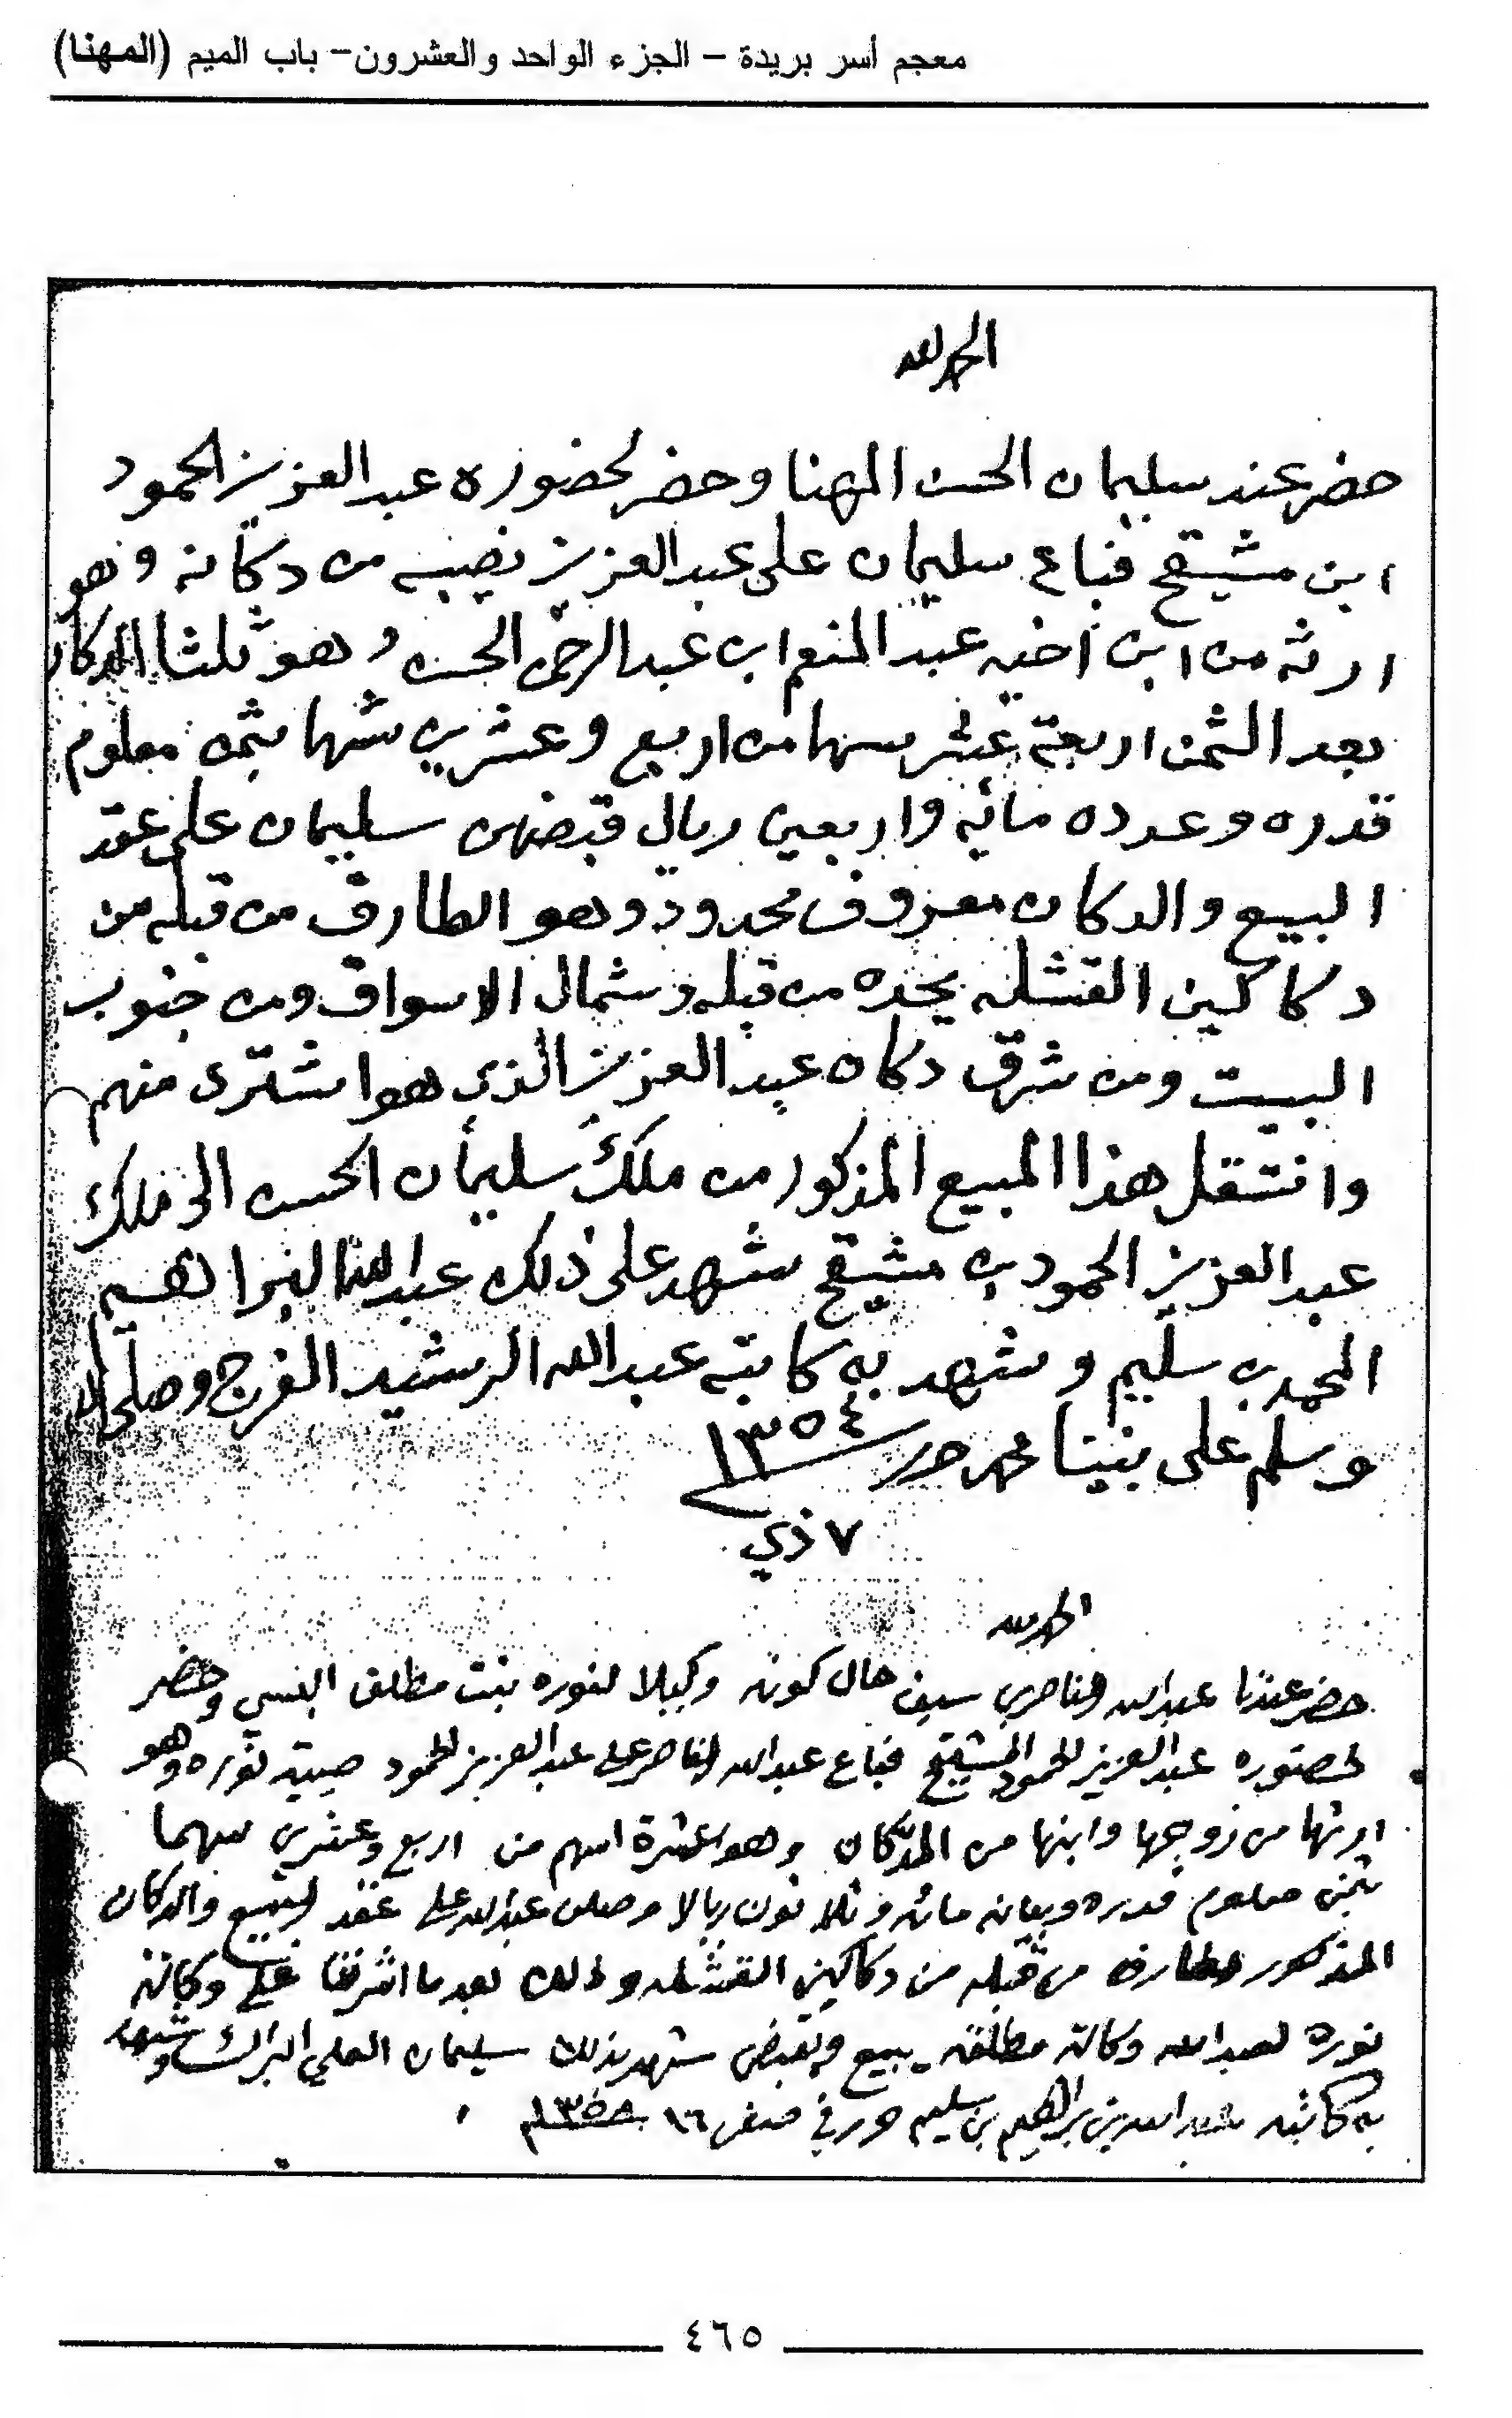 معجم أسر بريدة – الجزء الواحد والعشرون– باب الميم (المهنا)
الحمد لله
حضر عند سليمان الحسن المهنا وحضر لحضوره عبد العزيز الحمود
ابن مشيقح فباع سليمان على عبد العزيز نصيبه من دكانه وهو
ارثه من ابن اخيه عبد المنعم ابن عبد الرحمن الحسن وهو ثلثا الدكان
بعد الثمن اربعة عشر سهما من اربع وعشرين سهما بثمن معلوم
قدره وعدده مائه واربعين ريال قبضهن سليمان على عقد
البيع والدكان معروف محدود وهو الطارف من قبله من
دكاكين القشله يحده من قبله وشمال الاسواق ومن جنوب
البيت ومن شرق دكان عبد العزيز الذي هو اشترى منهم
وانتقل هذا المبيع المذكور من ملك سليمان الحسن الى ملك
عبد العزيز الحمود بن مشيقح شهد على ذلك عبد الله البراهيم
المحمد بن سليم وشهد به كاتبه عبد الله الرشيد الفرج وصلى الله
وسلم على نبينا محمد حرر ١٣٥٤
٧ ذي
الحمد لله
حضر عندنا عبد الله الناصر بن سيف حال كونه وكيلا لنوره بنت مطلق وحضر
لحضوره عبد العزيز الحمود المشيقح فباع عبد الله الناصر على عبد العزيز الحمود صيبة نوره وهو
ارثها من زوجها وابنها من الدكان وهو عشرة اسهم من اربع وعشرين سهما
بثمن معلوم قدره وبيانه مائه وثلاثون ريالا وصلن عبد الله على عقد البيع والدكان
المذكور طارف من قبله من دكاكين القشله وذلك بعدما اشرفنا على وكالة
نوره لعبد الله وكالة مطلقه يبيع ويقبض شهد بذلك سليمان العلي البراك وشهد
به كاتبه عبد الله بن ابراهيم بن سليم حرر في صفر ١٦
٤٦٥